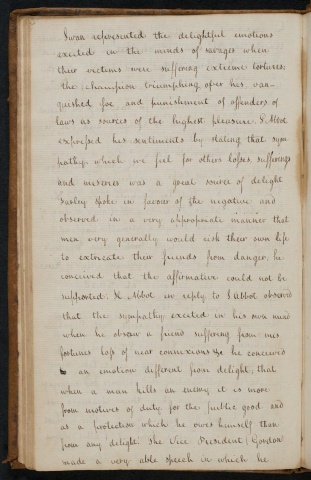 Swan represented the delightful emotions
excited in the minds of savages when
their victims were suffering extreme tortures;
the champion triumphing over his van-
quished foe and punishment of offenders of
laws as sources of the highest pleasure. S. Abbot
expressed his sentiments by stating that sym-
pathy, which we feel for others losses, sufferings
and miseries was a great source of delight
Farley spoke in favour of the negative and
observed in a very appropriate manner that
men very generally would risk their own life
to extricate their friends from danger, he
conceived that the affirmative could not be
supported. K. Abbot in reply to S. Abbot observed
that the sympathy excited in his own mind
when he observ a friend suffering from mis
fortunes loss of near connexions &c he conceived
an emotion different from delight; that
when a man kills an enemy it is more
from motives of duty for the public good and
as a protection which he owes himself than
from any delight. The Vice President (Gordon
made a very able speech in which he